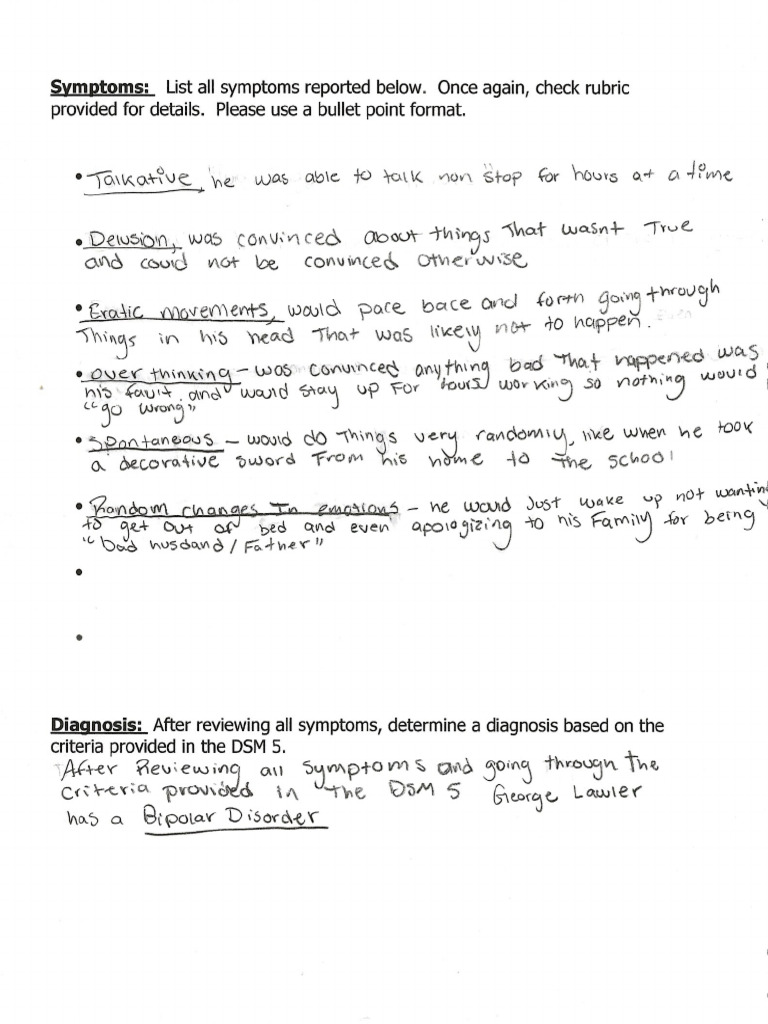 Symptoms: List all symptoms reported below. Once again, check rubric
provided for details. Please use a bullet point format.
• Talkative, he was able to talk non stop for hours at a time
• Delusion, was convinced about things That wasnt True
and could not be convinced otherwise
• Eratic movements, would pace bace and forth going through
Things in his head That was likely not to happen.
• over thinking - was convinced anything bad That happened was
his fault. and would stay up For hours working so nothing would
"go wrong"
• Spontaneous - would do Things very randomly, like when he took
a decorative sword From his home to the school
• Random changes In emotions - he would Just wake up not wantin
to get out of bed and even apologizing to his Family for being
"bad husband / Father"
•
•
Diagnosis: After reviewing all symptoms, determine a diagnosis based on the
criteria provided in the DSM 5.
After Reviewing all symptoms and going through the
criteria provided in the DSM 5 George Lawler
has a Bipolar Disorder